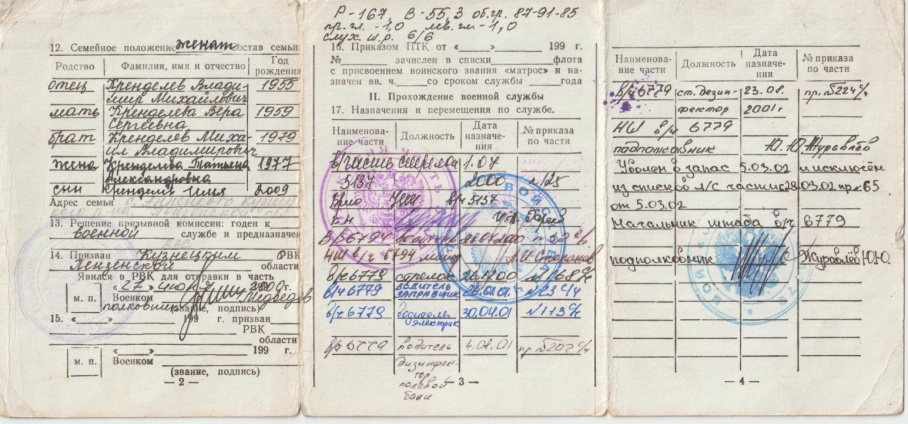 12. Семейное положение женат состав семьи
Родство Фамилия, имя и отчество Год рождения
отец Кренделев Влади-
мир Михайлович 1955
мать Кренделева Вера
Сергеевна 1959
брат Кренделев Миха-
ил Владимирович 1979
жена Кренделева Татьяна
Александровна 1977
сын Кренделев Илия 2009
Адрес семьи
13. Решение призывной комиссии: годен к
военной службе и предназначен
14. Призван Кузнецким РВК
Пензенской области
Явился в РВК для отправки в часть
«27» июня 2000 г.
м. п. Военком
полковник Медведев
(звание, подпись)
15. «___» 199 г. призван
РВК
области
«___» 199 г.
м. п. Военком
(звание, подпись)
— 2 —
Р-167, В-55,3 об.гр. 87-91-85
пр.гл. -1,0 лев.гл -1,0
слух ш.р. 6/6
16. Приказом ПТК от «___» 199 г.
№ зачислен в списки флота
с присвоением воинского звания «матрос» и на-
значен вв. ч. со сроком службы года
II. Прохождение военной службы
17. Назначения и перемещения по службе.
Наименова-
ние части Должность Дата
назначе-
ния № приказа
по части
в/часть стрелок 1.07
5137 2000 №125
в/ч 5137
в/ч 6794 водитель
НШ в/ч 6794
в/ч 6779 стрелок 26.12.00
в/ч 6779 водитель
заправщик
в/ч 6779 водитель
электрик 30.04.01 №113 с/ч
в/ч 6779 водитель 4.08.01 пр. №202 с/ч
дезинфек-
тор
полевой
бани
— 3 —
Наименова-
ние части Должность Дата
назначе-
ния № приказа
по части
в/ч 6779 ст. дезин- 23.08. пр. №224 с/ч
фектор 2001 г.
НШ в/ч 6779
подполковник Ю.Ю. Журавлёв
Уволен в запас 5.03.02 и исключён
из списков л/с части 28.03.02 пр. №65
от 5.03.02
Начальник штаба в/ч 6779
подполковник Журавлёв Ю.Ю.
— 4 —